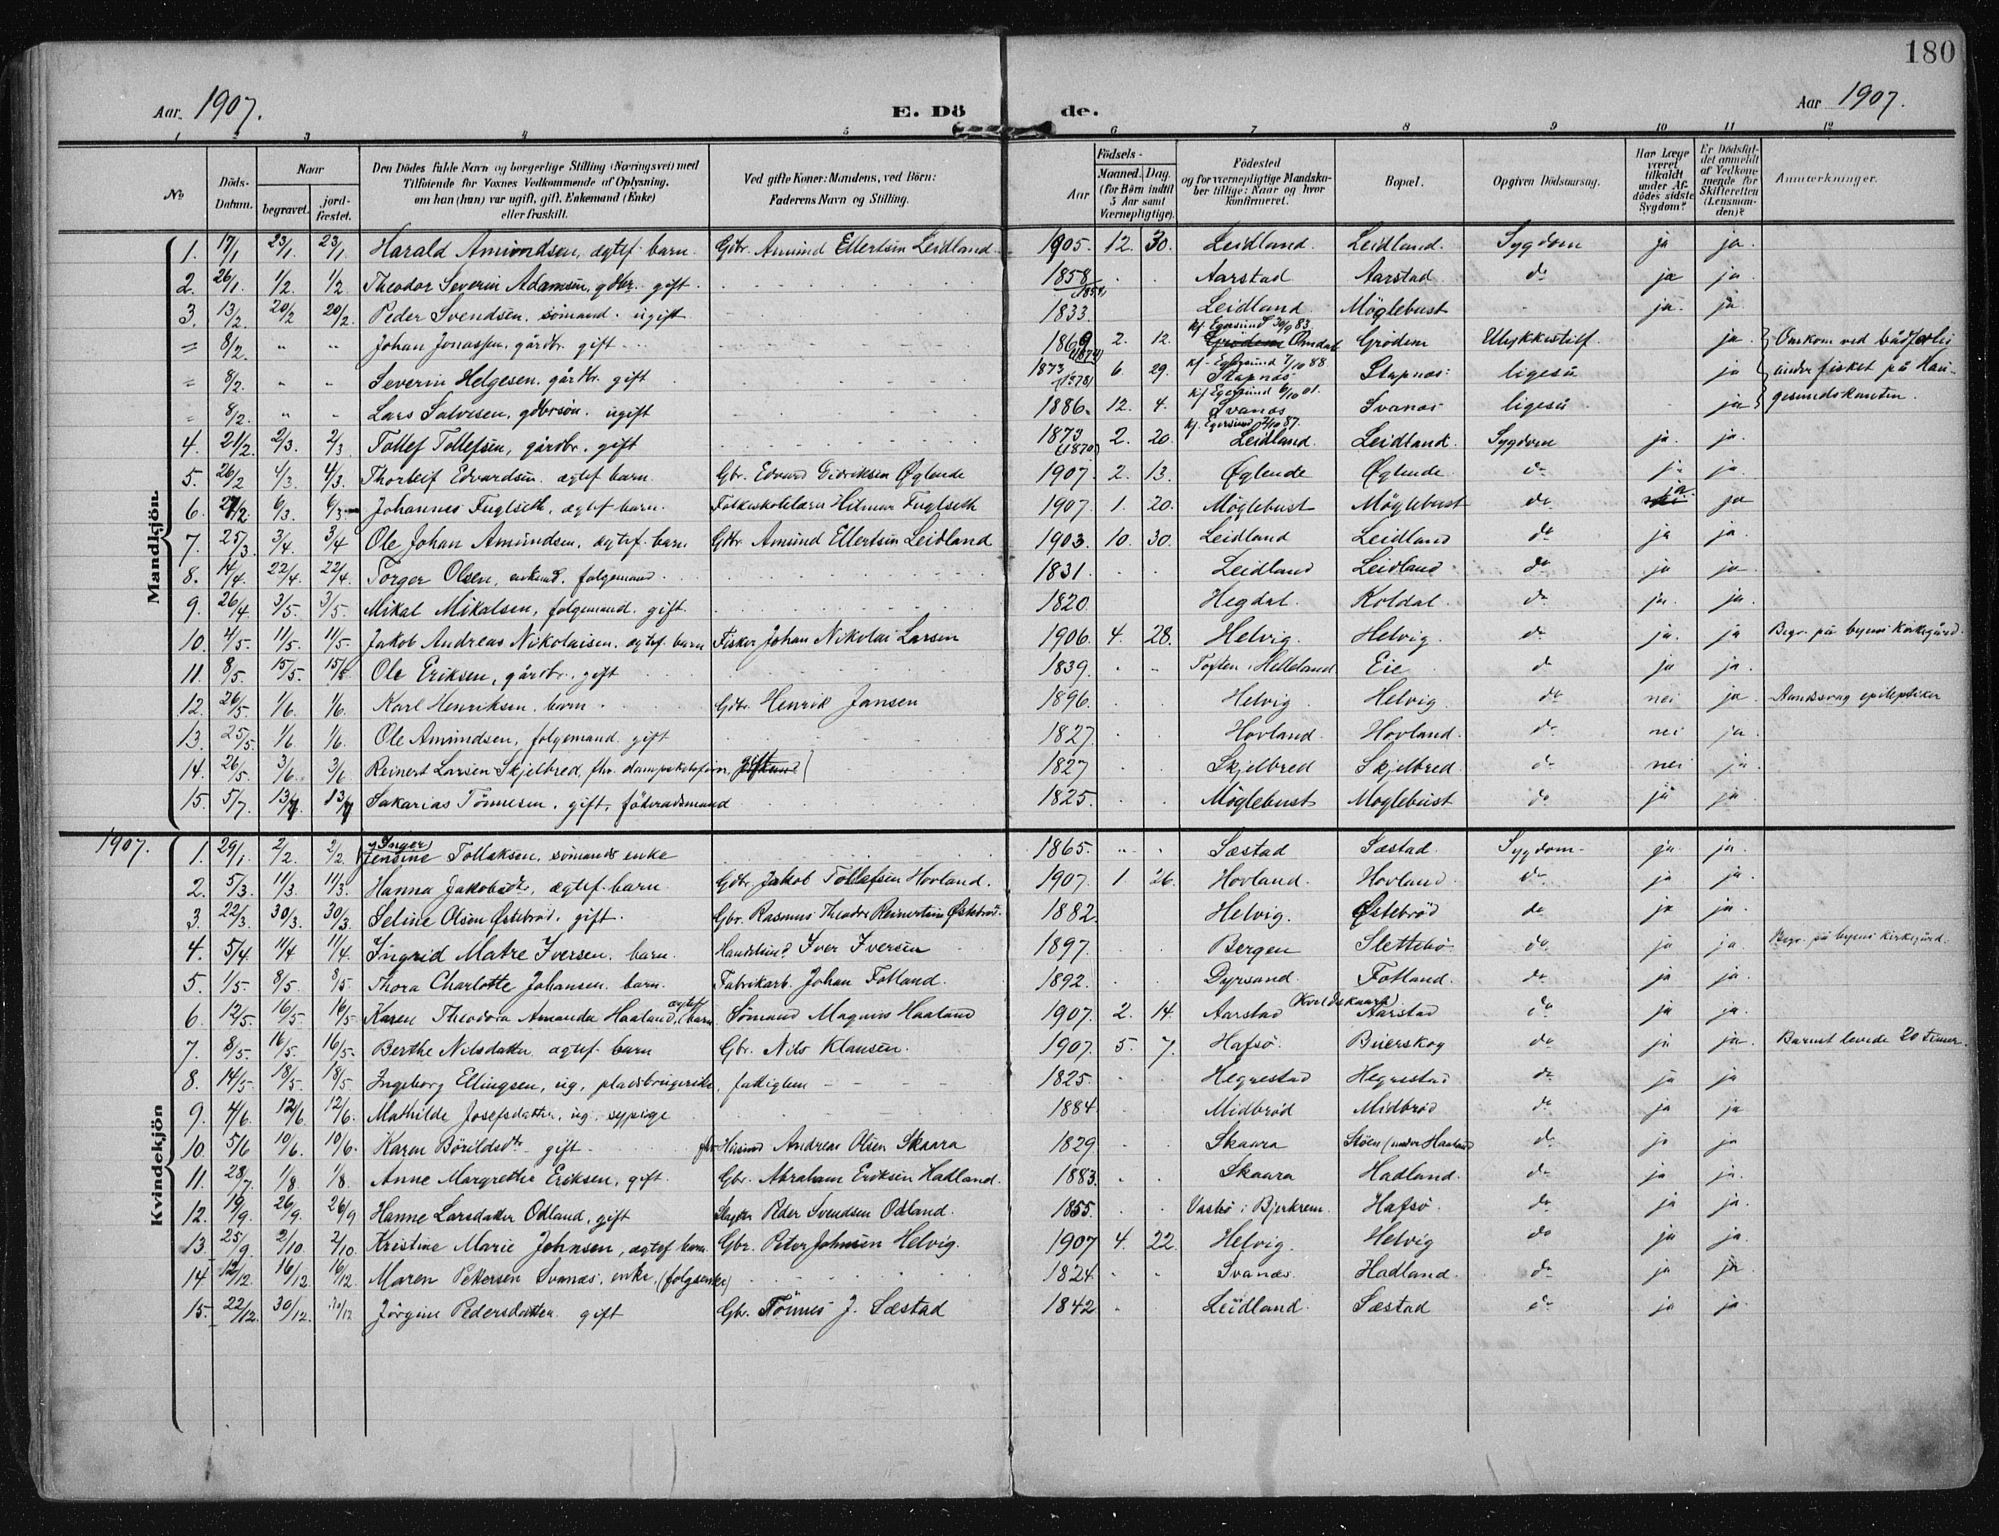 180
Aar 1907. E. Dö de. Aar 1907.
1 2 3 4 5 6 7 8 9 10 11 12
No Döds-Datum. Naar begravet. jordfæstet. Den Dödes fulde Navn og borgerlige Stilling (Næringsvei) med Tilföiende for Voxnes Vedkommende af Oplysning, om han (hun) var ugift, gift, Enkemand (Enke) eller fraskilt. Ved gifte Koner: Mandens, ved Börn: Faderens Navn og Stilling. Födsels- Aar Maaned. Dag. (for Börn indtil 5 Aar samt Værnepligtige). Födested og for værnepligtige Mandskaber tillige: Naar og hvor konfirmeret. Bopæl. Opgiven Dödsaarsag. Har Læge været tilkaldt under Afdödes sidste Sygdom? Er Dödsfaldet anmeldt af Vedkommende for Skifteretten (Lensmanden)? Anmærkninger.
Mandkjön.
1. 17/1 23/1. 23/1. Harald Amundsen, ægtef. barn. Gdbr. Amund Ellertsen Leidland. 1905. 12. 30. Leidland. Leidland. Sygdom ja ja.
2. 26/1. 1/2. 1/2. Theodor Severin Adamsen, gdbr. gift. 1858 Aarstad Aarstad do ja ja.
3. 13/2. 20/2 20/2. Peder Svendsen. sömand. ugift 1833. Leidland Möglebust ja. ja
= 8/2. " " Johan Jonassen, gårdbr. gift 1869 2. 12. Kf. Egersund 30/9 83. Grödem Omdal Grödem Ulykkestilf. ja Omkom ved bådforlis
= 8/2. " " Severin Helgesen. gårdbr. gift 1873 6. 29. Kf. Egersund 7/10 88 Stapnæs Stapnæs ligeså ja under fisket på Hau-
= 8/2. " " Lars Salvesen, gdbrsön. ugift 1886. 12. 4. Kf. Egersund 6/10 01. Svanæs Svanæs ligeså ja gesundskanten.
4. 21/2. 2/3. 2/3. Tollef Tollefsen, gårdbr. gift 1873 (1870) 2. 20. Kf. Egersund 2/10 87. Leidland Leidland. Sygdom ja. ja.
5. 26/2 4/3. 4/3. Thorleif Edvardsen. ægtef. barn. Gbr. Edvard Didriksen Øglende 1907. 2. 13. Øglende Øglende. do ja ja.
6. 27/2 6/3. 6/3. Johannes Fuglseth, ægtef. barn. Folkeskolelærer Hilmar Fuglseth 1907. 1. 20. Möglebust Möglebust do ja ja
7. 25/3. 3/4. 3/4 Ole Johan Amundsen, ægtef. barn Gdbr Amund Ellertsen Leidland 1903. 10. 30. Leidland Leidland do ja ja.
8. 14/4. 22/4. 22/4. Torger Olsen, enkemd. folgemand. 1831. Leidland Leidland do ja ja.
9. 26/4 3/5. 3/5. Mikal Mikalsen, folgemand. gift. 1820. Hegdal. Koldal. do ja. ja.
10. 4/5. 11/5. 11/5. Jakob Andreas Nikolaisen. ægtef. barn Fisker Johan Nikolai Larsen 1906. 4. 28. Helvig. Helvig. do ja. ja. Begr. på byens kirkegård.
11. 8/5. 15/5. 15/5 Ole Eriksen, gårdbr. gift 1839. i Helleland Eie do ja ja.
12. 26/5. 1/6. 1/6. Karl Henriksen. barn Gdbr. Henrik Jansen 1896. Helvig. Helvig. do nei ja. Aandssvag epileptiker
13. 25/5. 1/6 1/6. Ole Amundsen, folgemand gift 1827. Hovland. Hovland. do nei ja.
14. 26/5. 3/6. 3/6. Reinert Larsen Skjelbred, fhv. 1827 Skjelbred Skjelbred. do nei ja.
15. 5/7. 13/7. 13/7 Sakarias Tönnesen, gift, föderaadsmand 1825. Möglebust Moglebust do ja ja.
1907.
Kvindekjön
1. 29/1. 2/2. 2/2. Inger Jensine Tollaksen. sömands enke 1865. Sæstad Sæstad. Sygdom. ja ja.
2. 5/3. 11/3. 11/3. Hanna Jakobsdtr, ægtef. barn. Gdbr. Jakob Tollefsen Hovland. 1907. 1. 26. Hovland. Hovland do ja ja.
3 22/3. 30/3. 30/3. Seline Olsen Østebröd, gift. Gbr. Rasmus Theodor Reinertsen Østebröd. 1882. Helvig. Østebröd do ja ja.
4. 5/4 11/4 11/4. Ingrid Matre Iversen. barn. Iver Iversen 1897. Bergen Slettebö do ja ja. Begr. på byens kirkegård.
5. 1/5. 8/5. 8/5. Thora Charlotte Johansen. barn. Fabrikarb. Johan Fotland. 1892. Dyrsand. Fotland do ja ja.
6. 12/5. 16/5. 16/5 Karen Theodora Amanda Haaland, ægtef. barn Sömand Magnus Haaland 1907. 2. 14. Aarstad Aarstad do ja ja.
7. 8/5. 16/5. 16/5. Berthe Nilsdatter ægtef. barn Gbr. Nils Klausen. 1907. 5. 7. Hafsö Beierskog do ja ja. Barnet levede 20 timer.
8. 14/5. 18/5. 18/5. Ingeborg Ellingsen, ug, pladsbrugerske, fattiglem 1825. Hegrestad Hegrestad do ja ja
9. 4/6. 12/6. 12/6. Mathilde Josefsdatter, ug. sypige 1884 Midbröd Midbröd do ja ja
10. 5/6 10/6. 10/6. Karen Börildsdtr gift fhv. Andreas Olsen Skaara 1829. Skaara Stöen (under Haaland) do ja ja.
11. 28/7 1/8 1/8. Anne Margrethe Eriksen, gift. Gbr. Abraham Eriksen Hadland. 1883. Skaara Hadland. do ja ja.
12. 19/9. 26/9. 26/9 Hanne Larsdatter Odland, gift Peder Svendsen Odland. 1855. Vasbö i Bjerkrem. Hafsö do ja ja
13. 25/9. 2/10. 2/10. Kristine Marie Johnsen, ægtef. barn. Gbr. Peter Johnsen Helvig. 1907 4. 22. Helvig. Helvig do ja ja.
14 12/12. 16/12 16/12. Maren Pettersen Svanæs, enke, (folgeenke) 1824 Svanæs Hadland. do ja ja
15. 22/12. 30/12. Jörgine Pedersdatter gift Gbr. Tönnes J. Sæstad 1842 Leidland. Sæstad do ja ja.